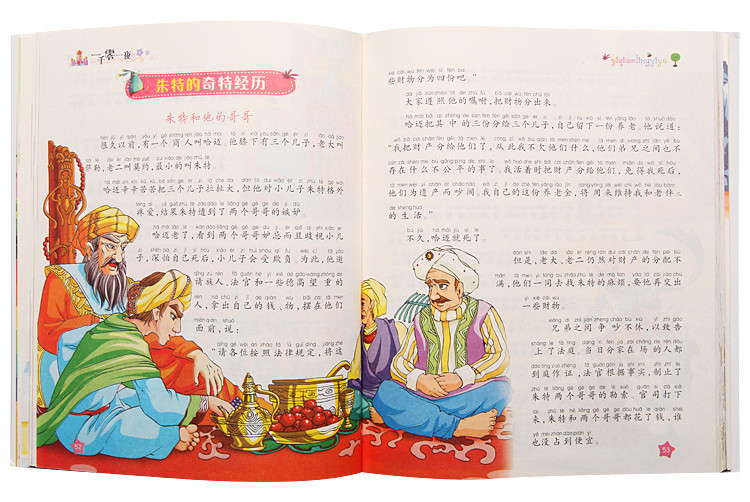 一千零一夜
朱特的奇特经历
朱特和他的哥哥
很久以前，有一个商人叫哈迈。他膝下有三个儿子，老大叫
萨勒，老二叫莫约，最小的叫朱特。
哈迈辛辛苦苦把三个儿子拉扯大，但他对小儿子朱特格外
疼爱，结果朱特遭到了两个哥哥的嫉妒。
哈迈老了，看到两个哥哥妒忌而且歧视小儿
子，深怕自己死后，小儿子会受欺负。为此，他邀
请族人、法官和一些德高望重的
人，拿出自己的钱、物，摆在他们
面前，说：
“请各位按照法律规定，将这
52
yiqianlingyiye
些财物分为四份吧。”
大家遵照他的嘱咐，把财物分出来。
哈迈把其中的三份分给三个儿子，自己留下一份养老。他说道：
“我把财产分给他们了，从此我不欠他们什么，他们弟兄之间也不
存在什么不公平的事了。我活着时把财产分给他们，免得我死后，
他们为遗产而吵闹。我自己的这份养老金，将用来维持我和老伴
的生活。”
不久，哈迈就死了。
但是，老大、老二仍然对财产的分配不
满，他们一同去找朱特的麻烦，要他再交出
一些财物。
兄弟之间争吵不休，以致告
上了法庭。当日分家在场的人都
到庭作证，法官根据事实，制止了
朱特两个哥哥的勒索。官司打下
来，朱特和两个哥哥都花了钱，谁
也没占到便宜。
53